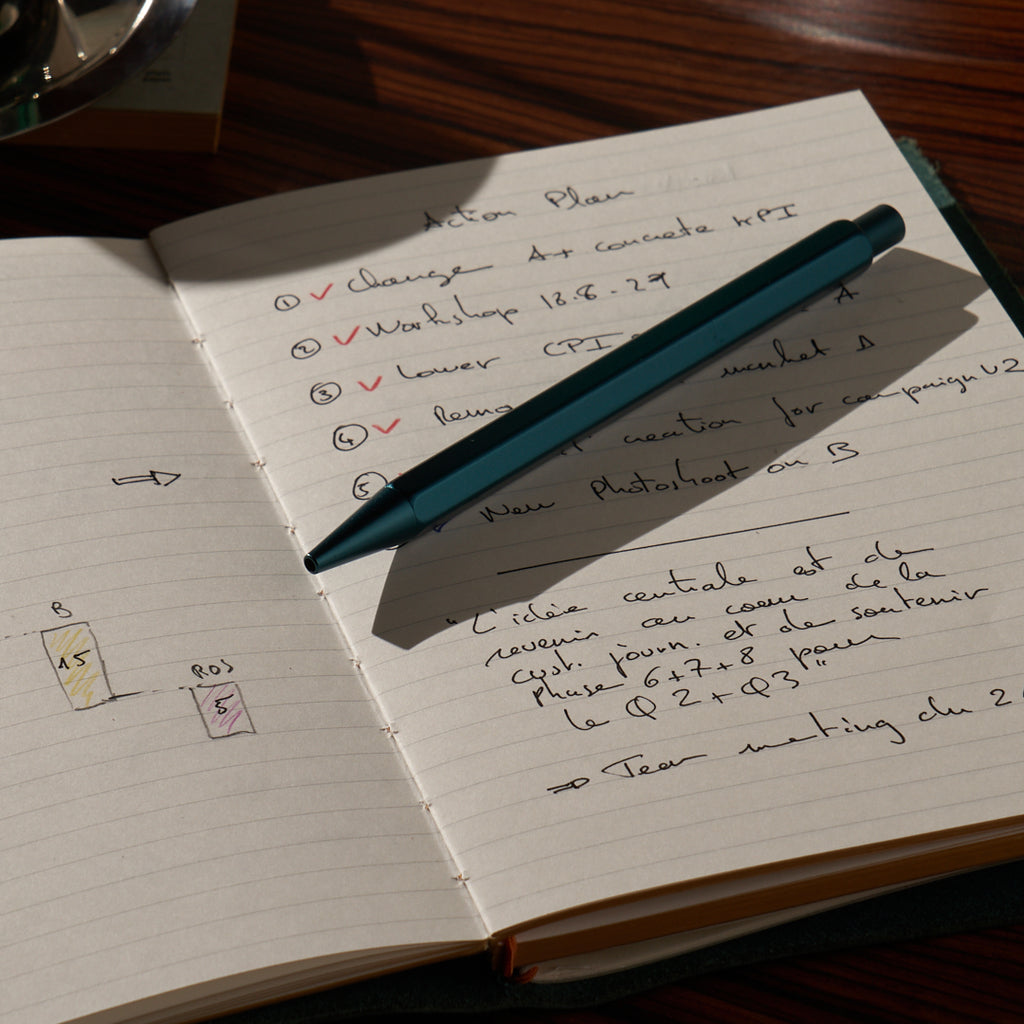 B
15
ROS
5
Action Plan
① Change A+ concrete KPI
② Workshop 18.8.-29
③ Lower CPI A
④ market A
⑤ creation for campaign V2
New Photoshoot on B
"L'idée centrale est de
revenir au coeur de la
cust. journ. et de soutenir
phase 6+7+8 pour
le Q2+Q3"
⇒ Team meeting du 2